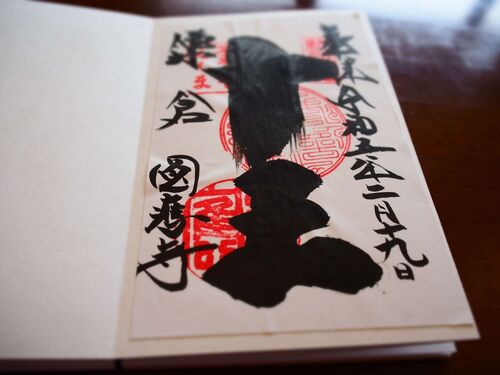 奉拝 令和五年二月十九日
十王
鎌倉 圓應寺